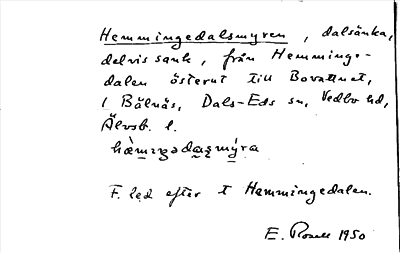 Hemmingedalsmyren, dalsänka,
delvis sank, från Hemminge-
dalen österut till Bovattnet,
i Bälnäs, Dals-Eds sn, Vedbo hd,
Älvsb. l.
F. led efter t Hemmingedalen.
E. Rosell 1950